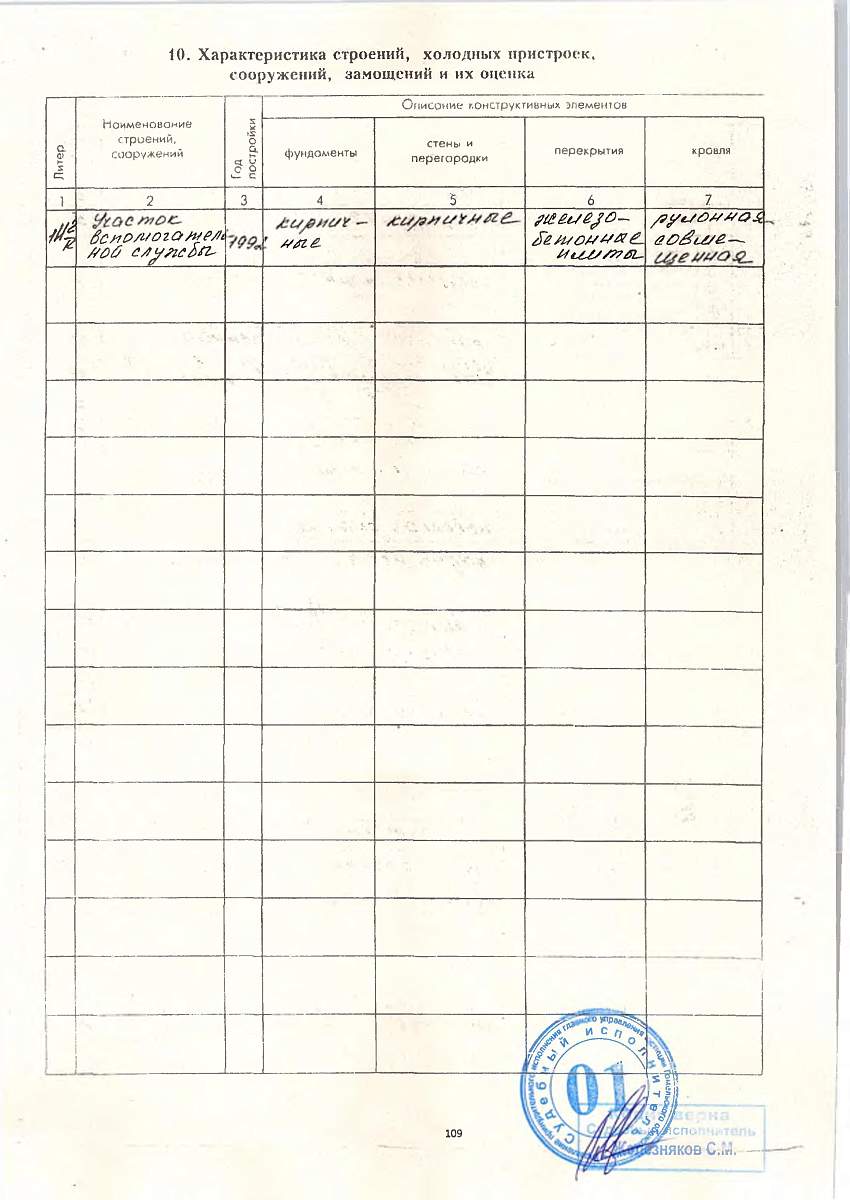 10. Характеристика строений, холодных пристроек,
сооружений, замощений и их оценка
Литер
Наименование
строений,
сооружений
Год
постройки
Описание конструктивных элементов
фундаменты
стены и
перегородки
перекрытия
кровля
1 2 3 4 5 6 7
Участок
вспомогатель
ной службы
1992
кирпич-
ные
кирпичные
железо-
бетонные
плиты
рулонная
совме-
щенная
Судебный исполнитель
01
верка
исполнитель
Железняков С.М.
109